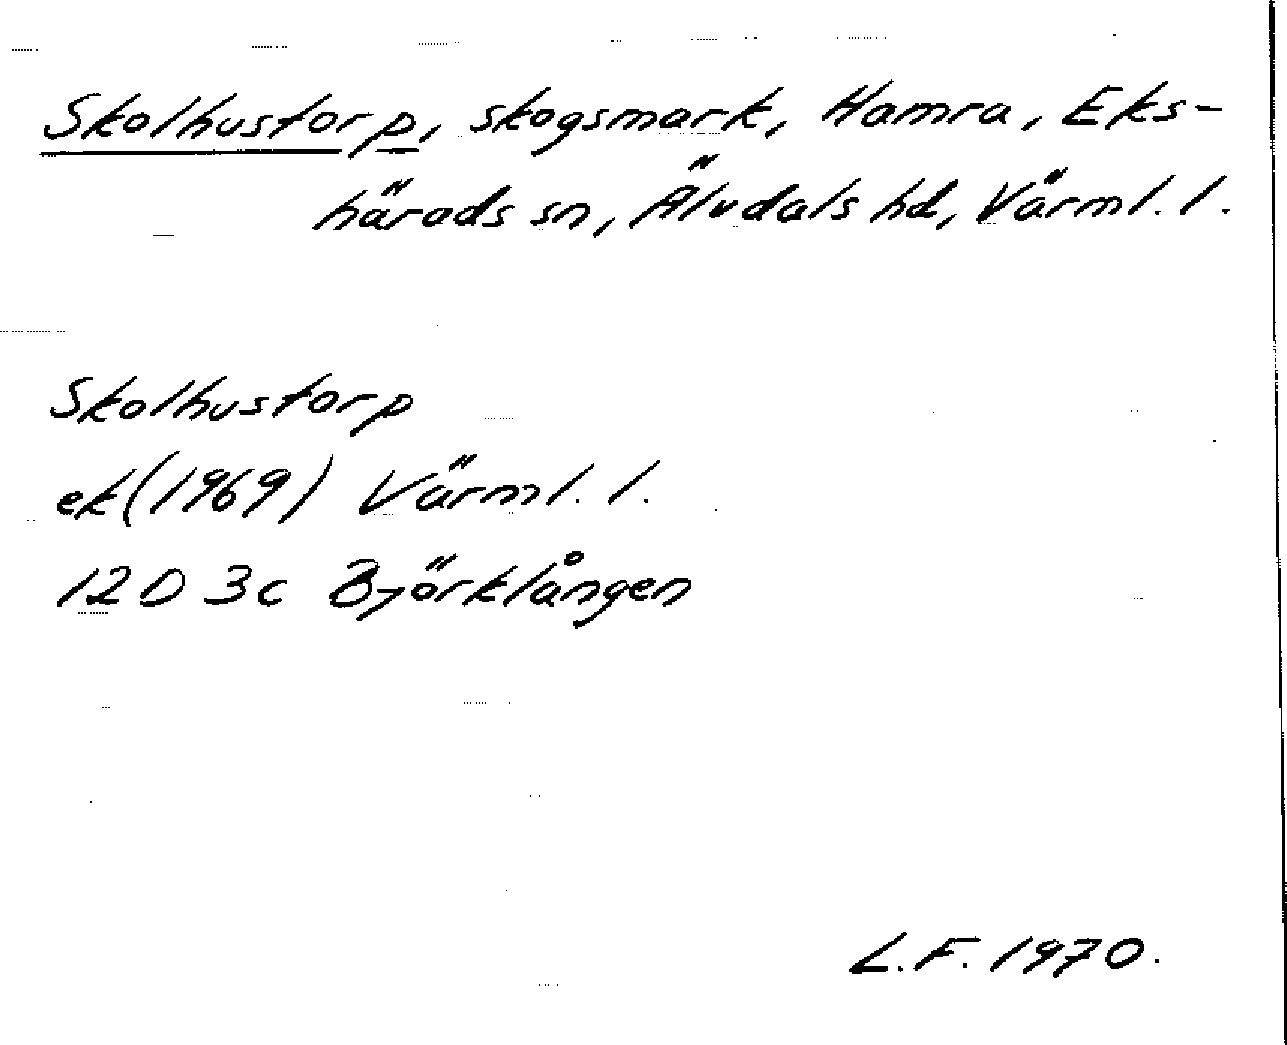 Skolhustorp, skogsmark, Hamra, Eks-
härads sn, Älvdals hd, Värml. l.
Skolhustorp
ek (1969) Värml. l.
12 D 3c Björklången
L.F. 1970.